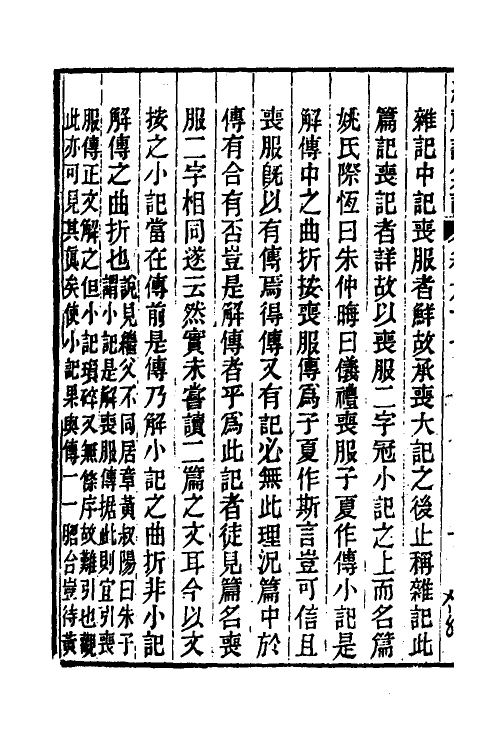 雜記中記喪服者鮮故承喪大記之後止稱雜記此
篇記喪記者詳故以喪服二字冠小記之上而名篇
姚氏際恆曰朱仲晦曰儀禮喪服子夏作傳小記是
解傳中之曲折按喪服傳爲子夏作斯言豈可信且
喪服旣以有傳焉得傳又有記必無此理況篇中於
傳有合有否豈是解傳者乎爲此記者徒見篇名喪
服二字相同遂云然實未嘗讀二篇之文耳今以文
按之小記當在傳前是傳乃解小記之曲折非小記
解傳之曲折也
說見繼父不同居章黃叔陽曰朱子
謂小記是解喪服傳據此則宜引喪
服傳正文解之但小記瑣碎又無倫序故難引也觀
此亦可見其眞矣使小記果與傳一一脗合豈待黃